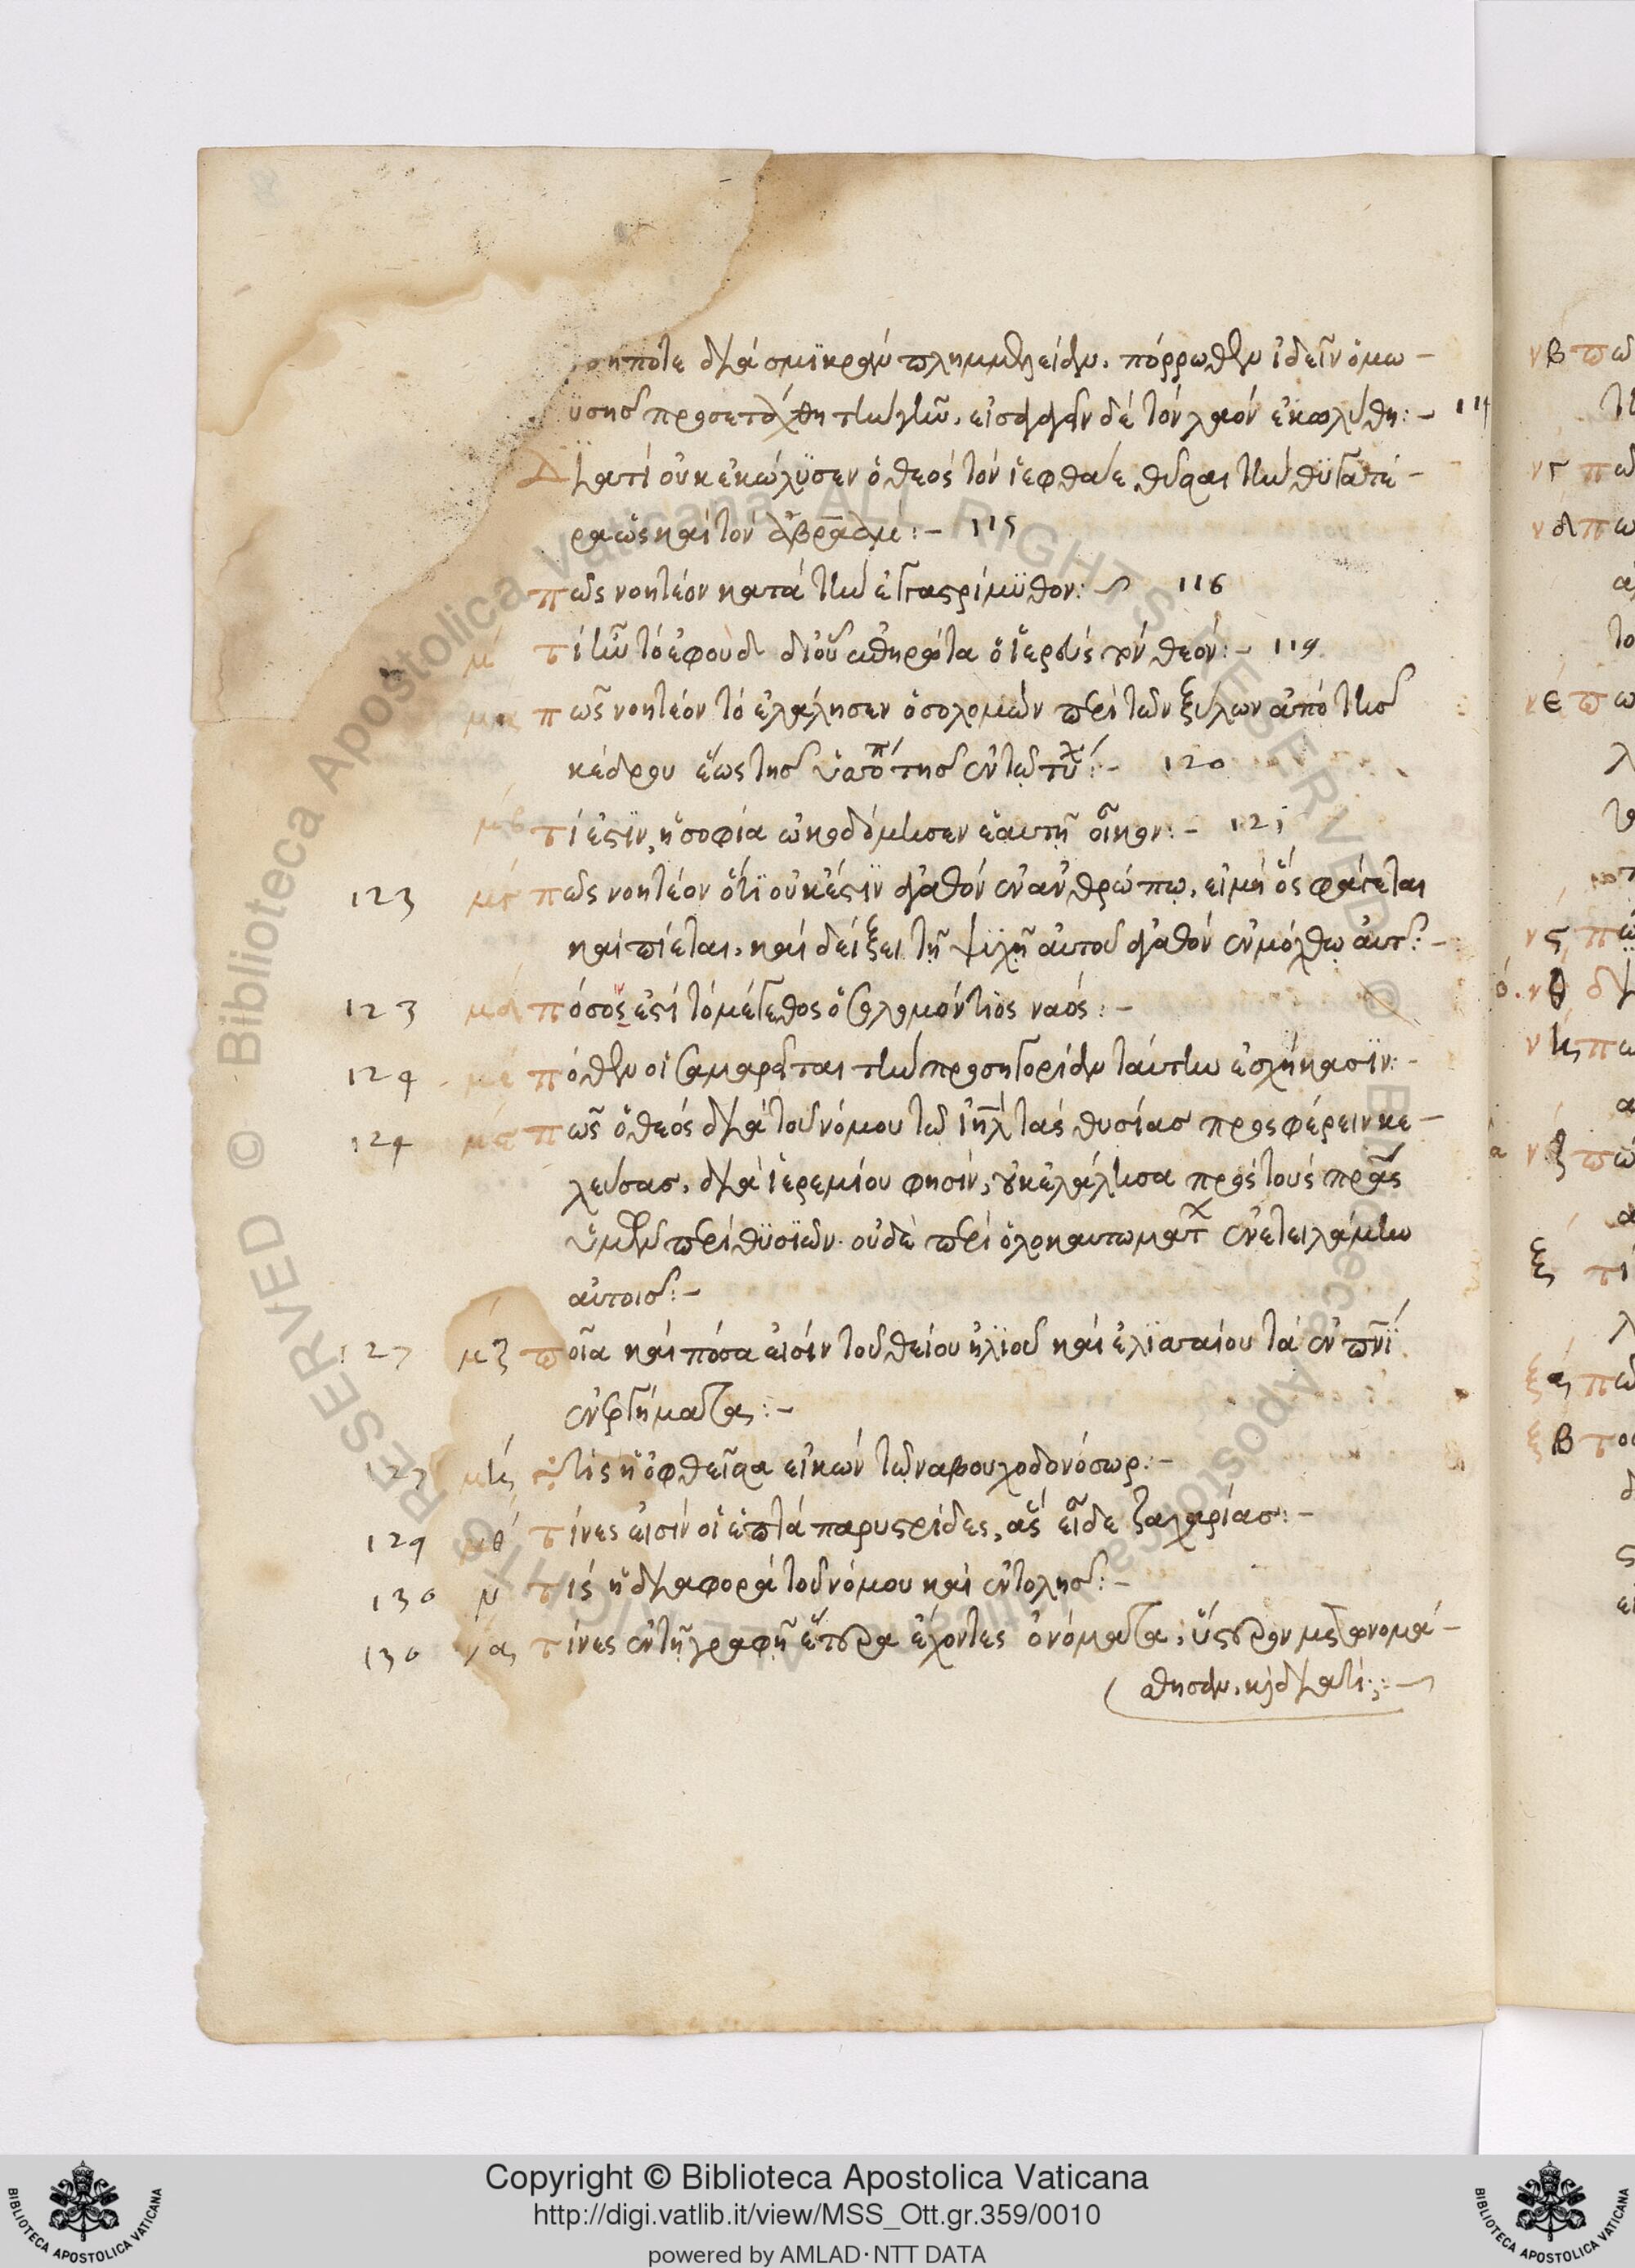 δήποτε διὰ σμϊκρὰν πλημμέλειαν, πόρρωθεν ἰδεῖν ὁ μω -
ϋσῆς προσετάχθη τὴν γῆν, εἰσαγαγεῖν δὲ τὸν λαὸν ἐκωλύθη :- 114
Διατί οὐκ ἐκώλϋσεν ὁ θεὸς τὸν ἰεφθάε θῦσαι τὴν θϋγατέ -
ρα ὡς καὶ τὸν ἀβραάμ :- 115
πῶς νοητέον κατὰ τὴν ἐγγαστρίμϋθον : 116
μ τί ἦν τὸ ἐφοὺδ δι' οὗ ἐπηρώτα ὁ ἱερεὺς τὸν θεόν :- 119
μα πῶς νοητέον τὸ ἐλάλησεν ὁ σολομὼν περὶ τῶν ξύλων ἀπὸ τῆς
κέδρου ἕως τῆς ὑσσώπου τῆς ἐν τῷ τοίχ :- 120
μβ τί ἐστϊν, ἡ σοφία ὠκοδόμησεν ἑαυτῇ οἶκον :- 121
123 μγ πῶς νοητέον ὅτϊ οὐκ ἔστϊν ἀγαθὸν ἐν ἀνθρώπῳ, εἰ μὴ ὃς φάγεται
καὶ πίεται, καὶ δείξει τῇ ψϋχῇ αὐτοῦ ἀγαθὸν ἐν μόχθῳ αὐτ :-
123 μδ πόσος ἐστί τὸ μέγεθος ὁ σολομόντιος ναός :-
124 με πόθεν οἱ σαμαρεῖται τὴν προσηγορίαν ταύτην ἐσχήκασϊν :-
124 μς πῶς ὁ θεὸς διὰ τοῦ νόμου τῷ ιηλ τὰς θυσίας προσφέρειν κε -
λεύσας, διὰ ἰερεμίου φησίν, οὐκ ἐλάλησα πρὸς τοὺς πρας
ὑμῶν περὶ θϋσϊῶν οὐδὲ περὶ ὁλοκαυτωμάτ ἐνετειλάμην
αὐτοῖς :-
127 μζ ποῖα καὶ πόσα εἰσὶν τοῦ θείου ἠλϊοῦ καὶ ἐλϊσσαίου τὰ ἐν πνϊ
ἐνεργήματα :-
127 μη τίς ἡ ὀφθεῖσα εἰκὼν τῷ ναβουχοδονόσωρ :-
129 μθ τίνες εἰσὶν οἱ ἑπτὰ παρυστρίδες, ἃς εἶδε ζαχαρίας :-
130 ν τίς ἡ διαφορὰ τοῦ νόμου καὶ ἐντολῆς :-
130 να τίνες ἐν τῇ γραφῇ ἕτερα ἔχοντες ὀνόματα, ὕστερον μετωνομά -
σθησαν, κὶ διατί :-
Copyright © Biblioteca Apostolica Vaticana
http://digi.vatlib.it/view/MSS_Ott.gr.359/0010
powered by AMLAD·NTT DATA